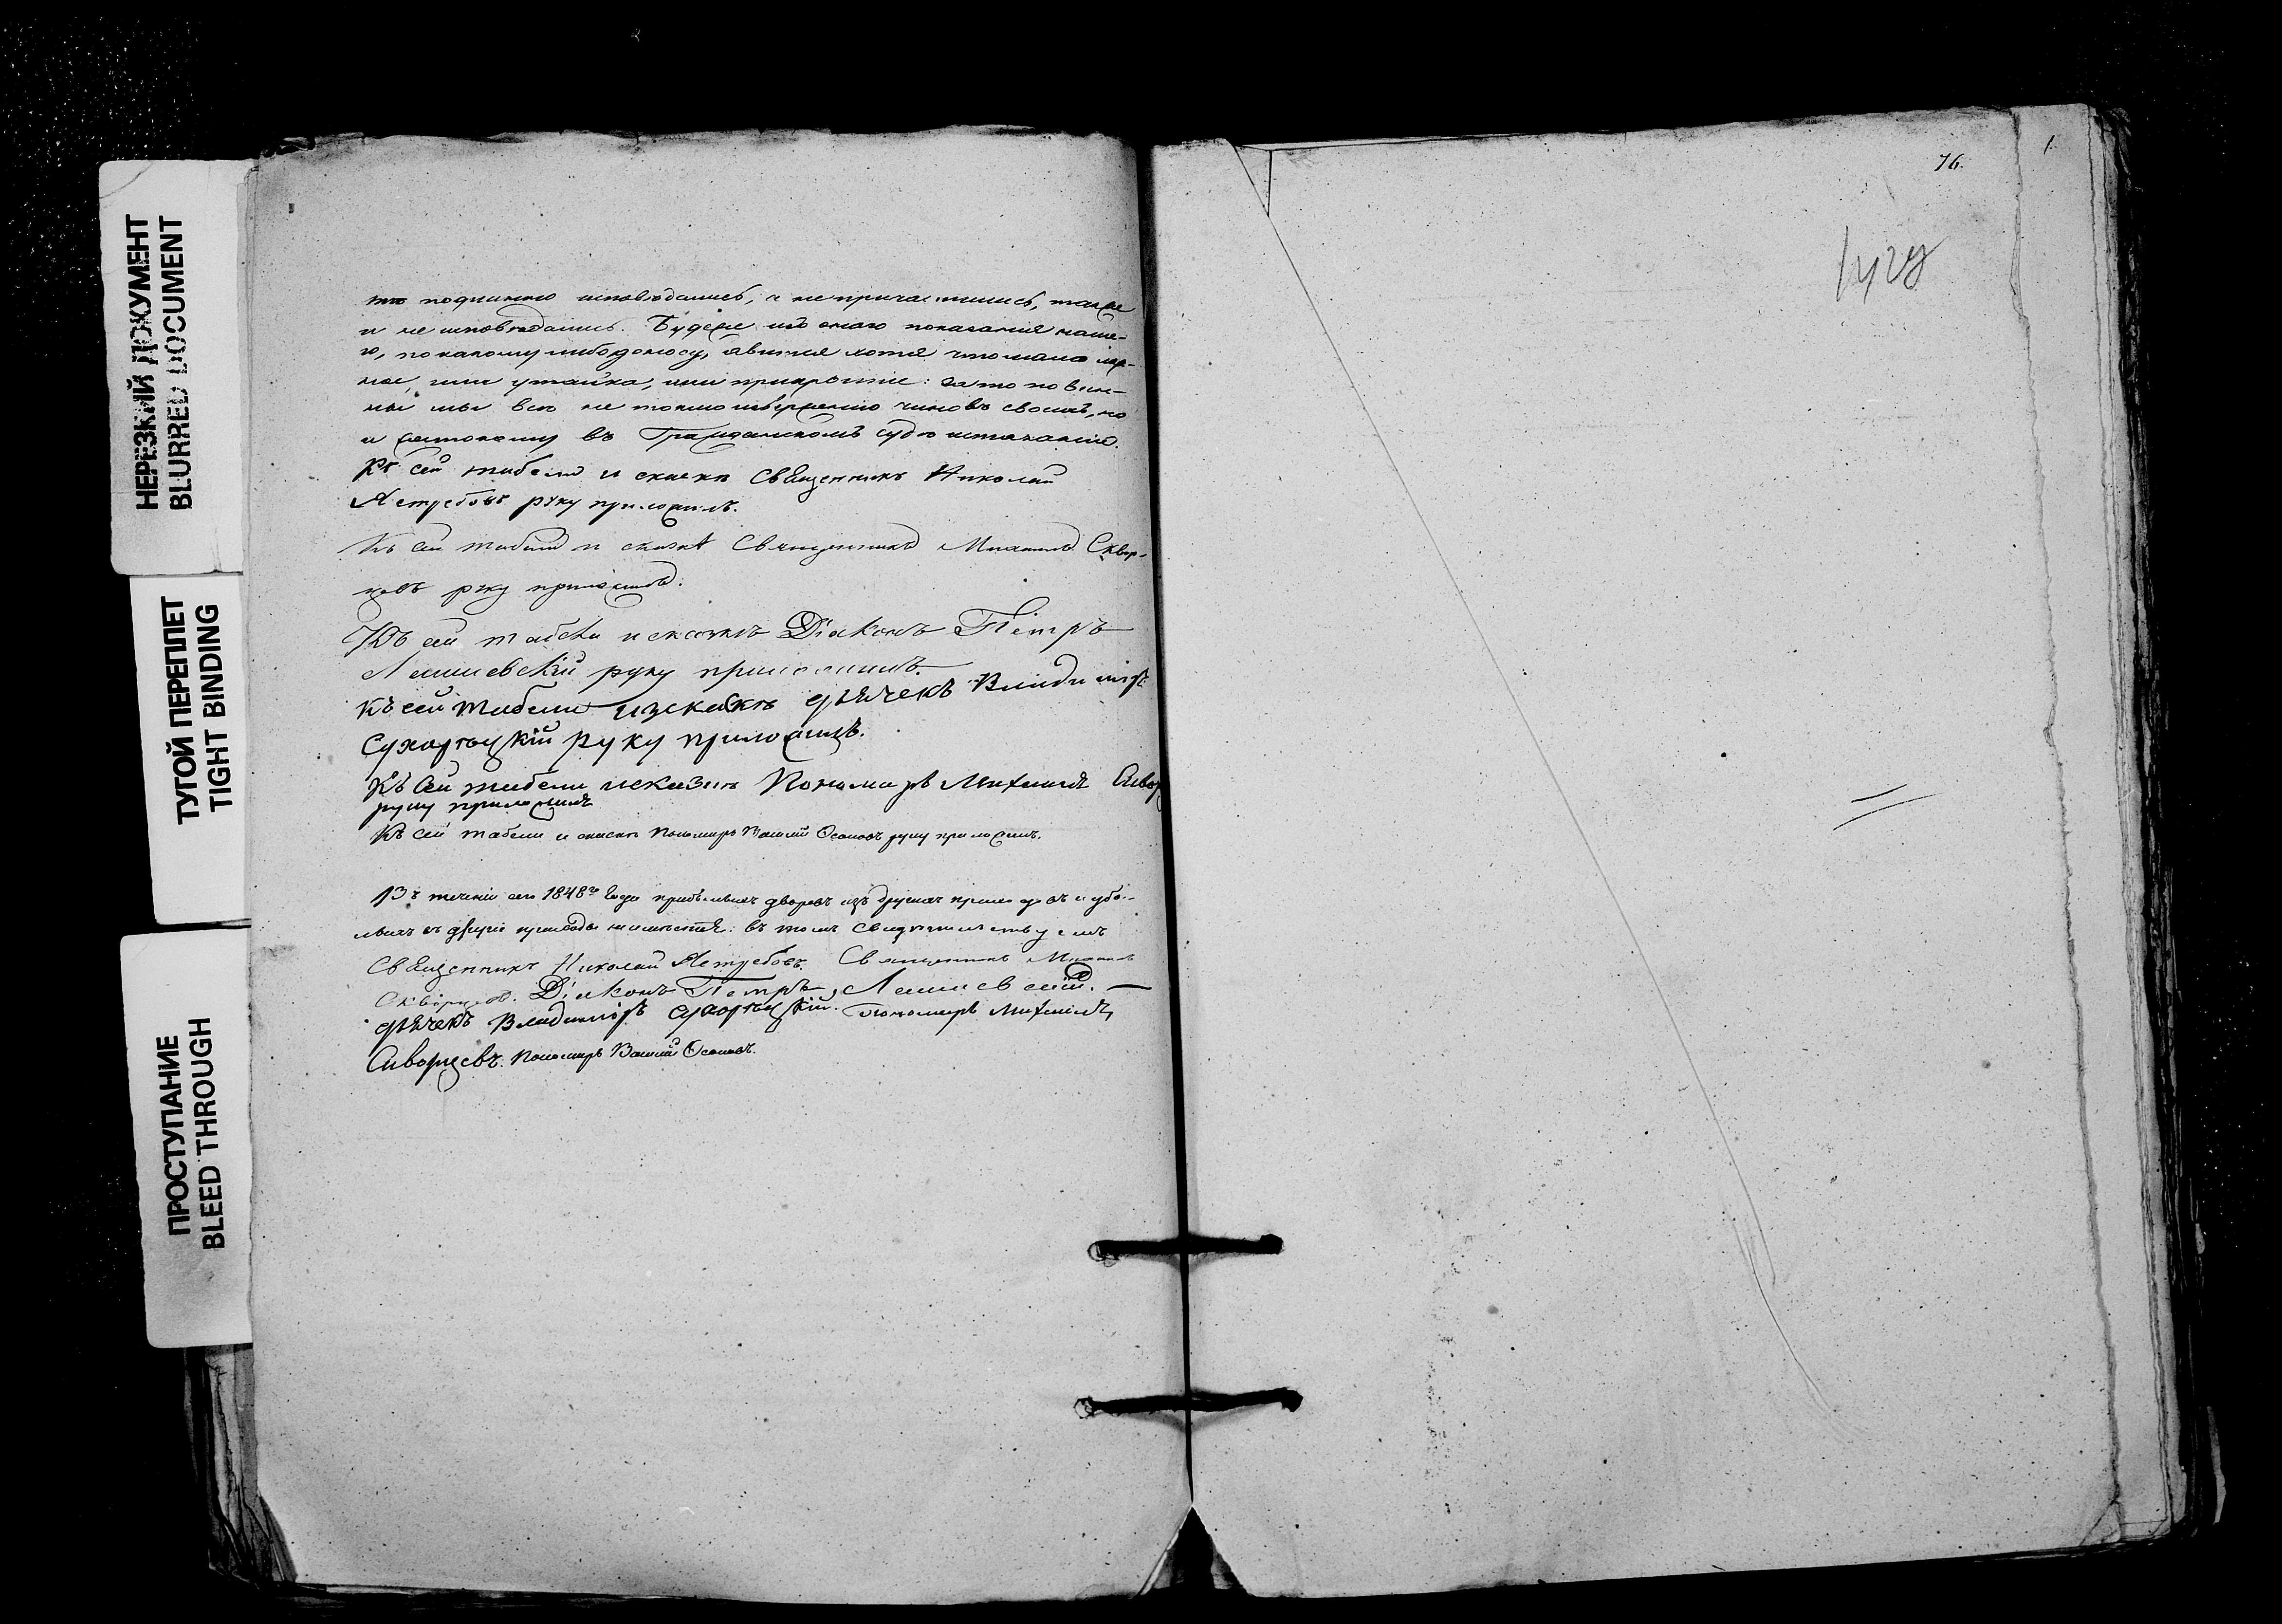 НЕРЕЗКИЙ ДОКУМЕНТ
BLURRED DOCUMENT
ТУГОЙ ПЕРЕПЛЕТ
TIGHT BINDING
ПРОСТУПАНИЕ
BLEED THROUGH
исповѣдались, и не причастились, также
и не исповѣдались. Будеже изъ онаго показанія наше-
го, по какому либо доносу, явится хотя что мало лож-
ное, или утайка, или прикрытіе: за то повин-
ны мы все не токмо изверженію чиновъ своихъ, но
и жестокому въ Гражданскомъ судѣ истязанію.
Къ сей табели и сказкѣ Священникъ Николай
Ястребовъ руку приложилъ.
Къ сей табели и сказкѣ Священникъ Михаилъ Сквор-
цовъ руку приложилъ.
Къ сей табели и сказкѣ Діаконъ Петръ
руку приложилъ.
Къ сей табели и сказкѣ дьячекъ Владиміръ
руку приложилъ.
Къ сей табели и сказкѣ Пономарь Михаилъ Сквор
руку приложилъ
Къ сей табели и сказкѣ Пономарь Василій Осповъ руку приложилъ.
Въ теченіи сего 1848го года прибылыхъ дворовъ изъ другихъ приходовъ и убы-
лыхъ въ другіе приходы не имѣется: въ томъ свидѣтельствуемъ
Священникъ Николай Ястребовъ. Священникъ Михаилъ
Скворцовъ. Діаконъ Петръ
дьячекъ Владиміръ Пономарь Михаилъ
Скворцевъ. Пономарь Василій
76.
1.